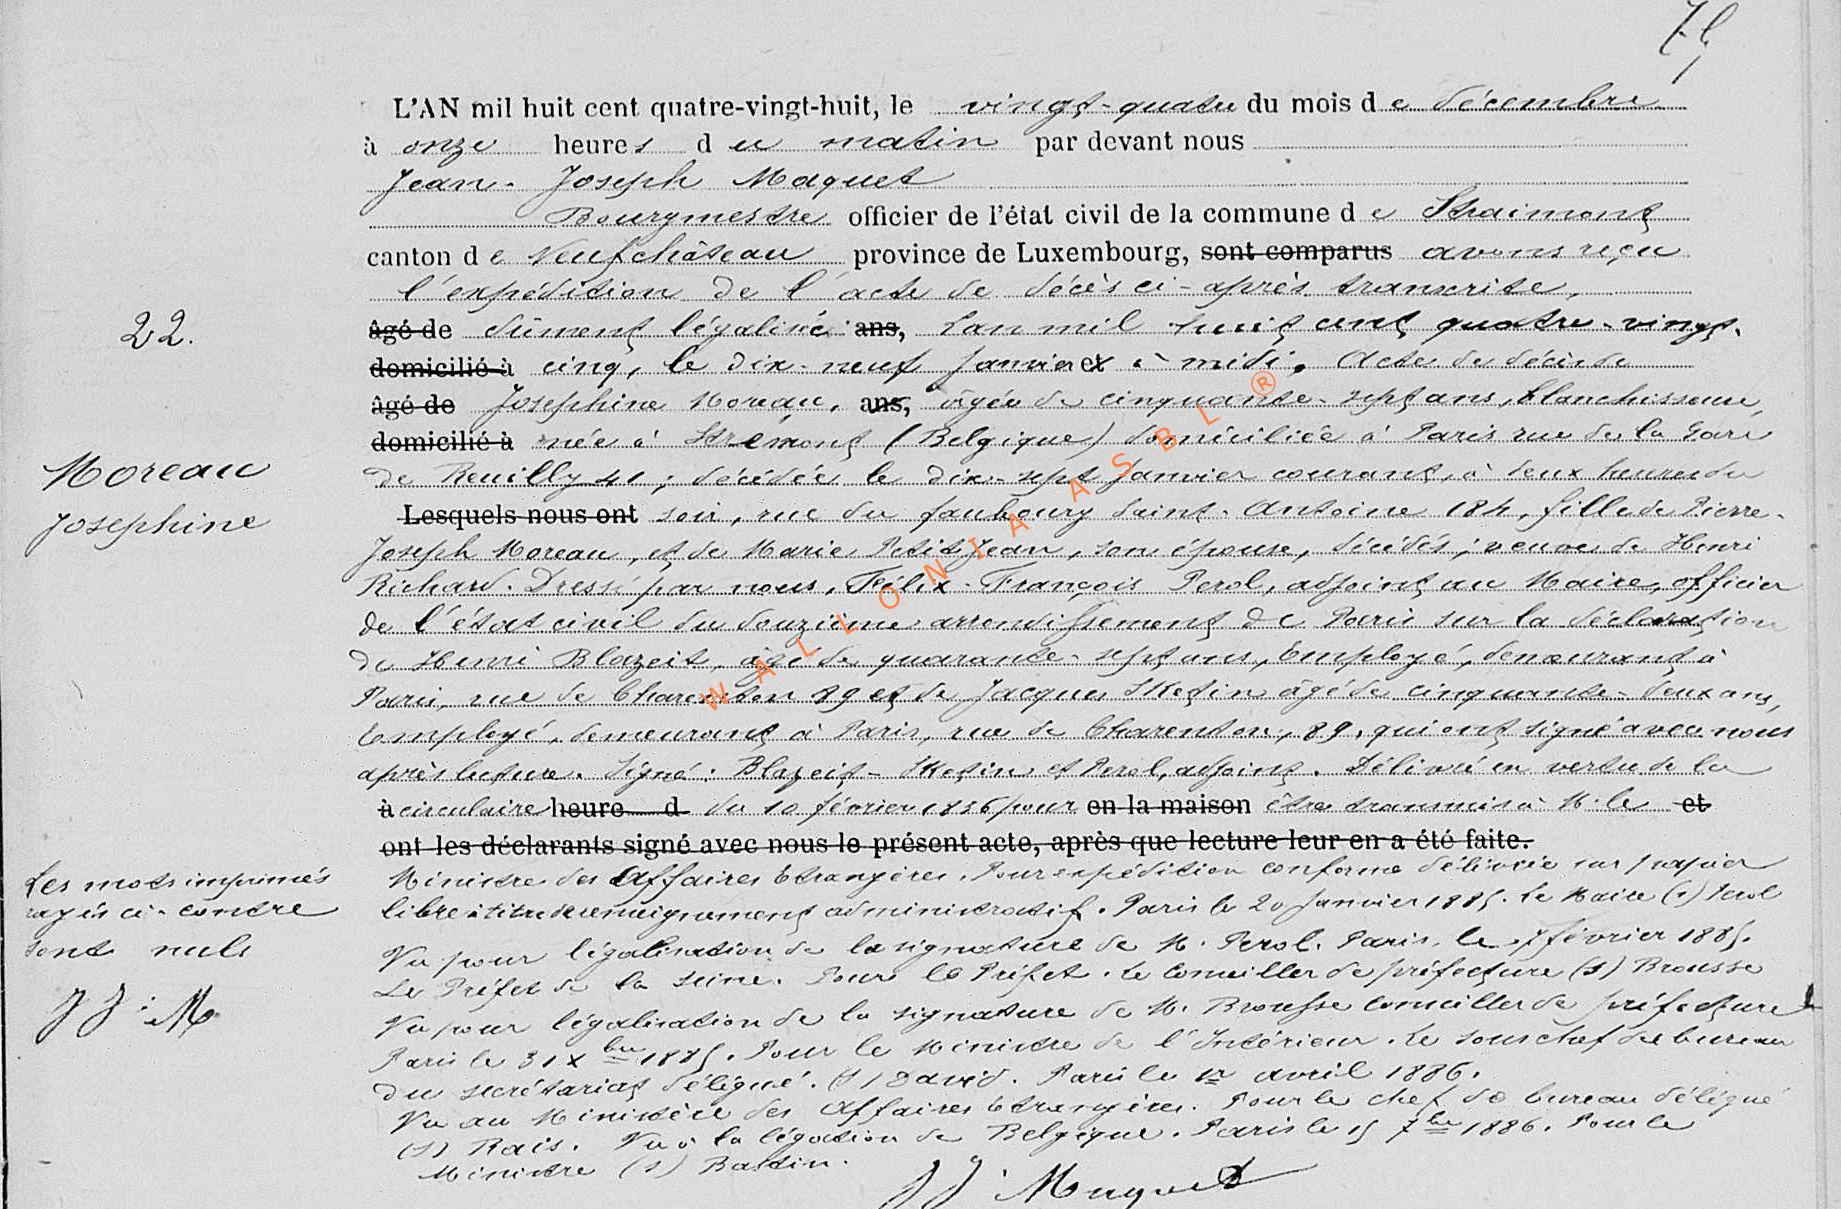 75
L'AN mil huit cent quatre-vingt-huit, le vingt-quatre du mois de décembre
à onze heures du matin par devant nous
Jean-Joseph Maquet
Bourgmestre officier de l'état civil de la commune de Straimont
canton de Neufchâteau province de Luxembourg, sont comparus avons reçu
l'expédition de l'acte de décès ci-après transcrite,
22.
âgé de dûment légalisée ans, L'an mil huit cent quatre-vingt-
domicilié à cinq, le dix-neuf Janvier et à midi. Acte de décès de
âgé de Joséphine Moreau, ans, âgée de cinquante-sept ans, blanchisseuse,
domicilié à née à Strémont (Belgique) domiciliée à Paris rue de la Gare
Moreau
Joséphine
de Reuilly 41; décédée le dix-sept Janvier courant, à deux heures du
Lesquels nous ont soir, rue du faubourg Saint-Antoine 184, fille de Pierre-
Joseph Moreau, et de Marie Petit Jean, son épouse, décédés; veuve de Henri
Richard. Dressé par nous, Félix-François Perol, adjoint au Maire, officier
de l'état civil du douzième arrondissement de Paris sur la déclaration
de Henri Blazeit, âgé de quarante-sept ans, Employé, demeurant à
Paris, rue de Charenton 89 et de Jacques Metzin âgé de cinquante-deux ans,
Employé, demeurant à Paris, rue de Charenton, 89, qui ont signé avec nous
après lecture. Signé: Blazeit - et Perol, adjoint. Délivré en vertu de la
à circulaire heure d du 10 février 1836 pour en la maison être transmis à M. le et
ont les déclarants signé avec nous le présent acte, après que lecture leur en a été faite.
Les mots imprimés
rayés ci-contre
sont nuls
J J. M
Ministre des Affaires Etrangères. Pour expédition conforme délivrée sur papier
libre à titre de renseignement administratif. Paris le 20 Janvier 1885. Le Maire (s) Perol
Vu pour légalisation de la signature de M. Perol. Paris, le 7 février 1885.
Le Préfet de la Seine. Pour le Préfet. Le Conseiller de préfecture (s) Brousse
Vu pour légalisation de la signature de M. Brousse Conseiller de préfecture
Paris le 31 Xbre 1885. Pour le Ministre de l'Intérieur. Le sous chef de bureau
du secrétariat délégué. (s) David. Paris le 1er avril 1886.
Vu au Ministère des Affaires Etrangères. Pour le chef de bureau délégué
(s) Rais. Vu à la légation de Belgique. Paris le 15 7bre 1886. Pour le
Ministre (s) Bastin.
J J. Maquet
WALLONIA ASBL ®